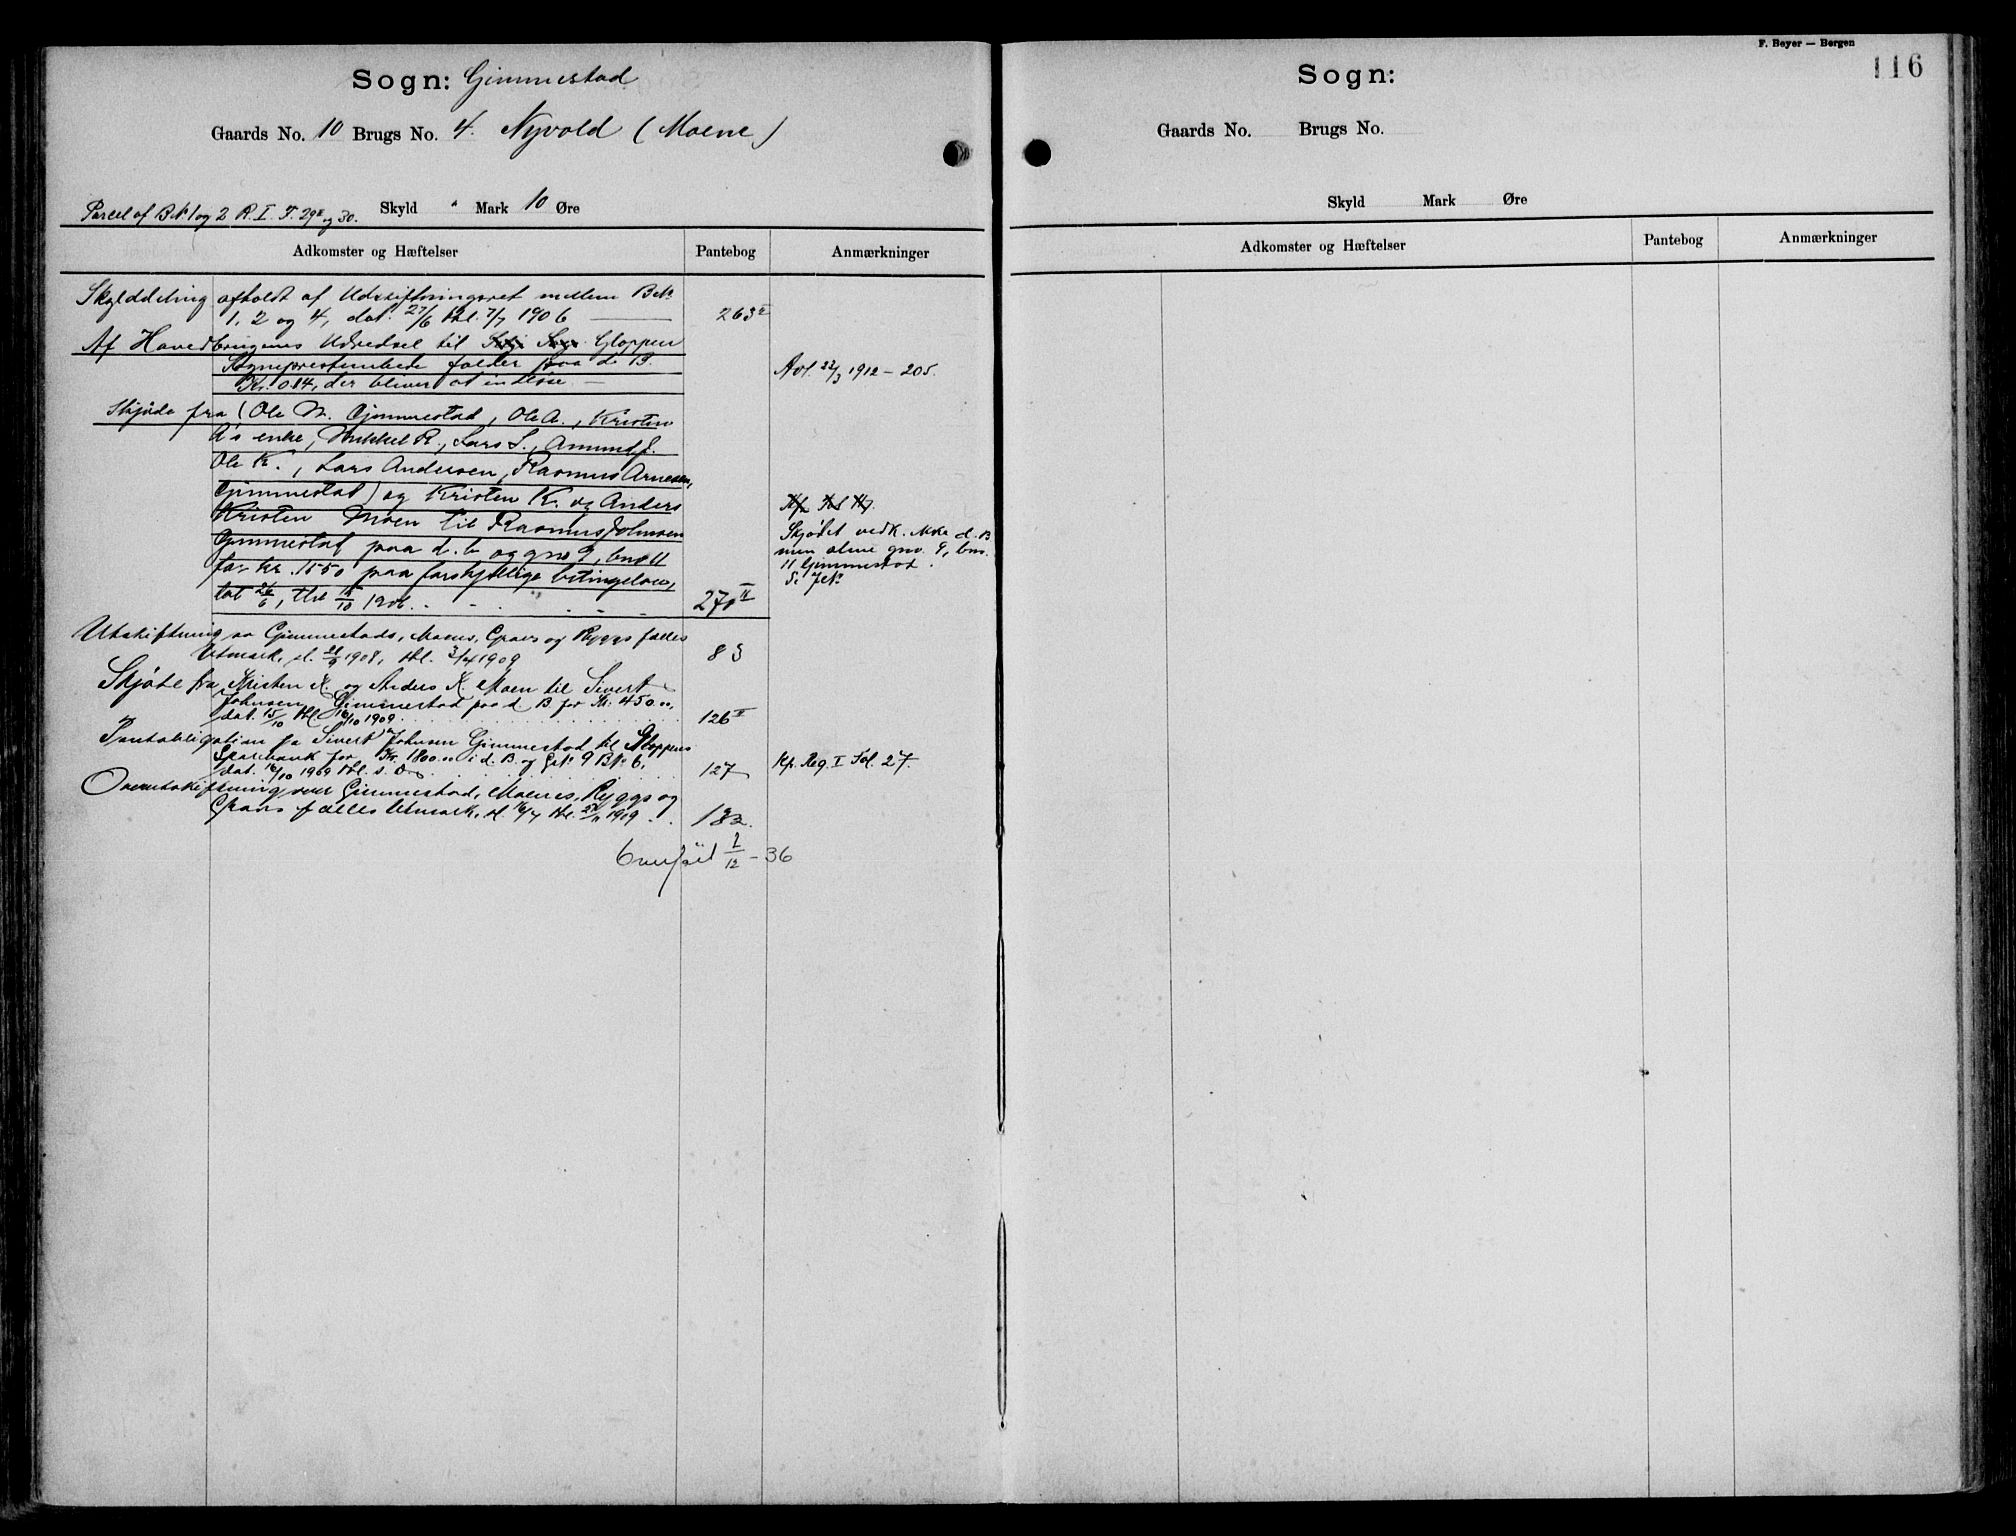 Sogn: Gimmestad
Gaards No. 10 Brugs No. 4. Nyvold (Moene)
Parcel af B.N. 1 og 2 R. I. F. 29II og 30. Skyld " Mark 10 Øre
Adkomster og Hæftelser Pantebog Anmærkninger
Skylddeling afholdt af Udskiftningsret mellem BNo
1, 2 og 4, dat. 27/6 thl. 7/7 1906 263II
Af Hovedbrugenes Udredsel til Gloppen
Sogneprestembede falder paa d. B.
Kr. 0.14, der bliver at indløse. — Avl. 22/3 1912 – 205.
Skjøde fra (Ole M. Gimmestad, Ole A., Kristen
A's enke, Mikkel R., Lars S., Amund J.
Ole K., Lars Andersen, Rasmus Arnesen,
Gimmestad) og Kristen K. og Anders
Kristen Moen til Rasmus Johnsen
Gimmestad paa d. b. og gno 9, bno 11
for kr. 1550 paa forskjellige betingelser,
dat 26/6, thl 15/10 1906. 270II
Skjødet vedk. ikke d. B
men alene gno. 9, bno.
11 Gimmestad.
Utskiftning av Gimmestads, Moens, Graos og Ryggs fælles
Utmark, d. 21/9 1908, thl. 3/4 1909 83
Skjøte fra Kristen K. og Anders K. Moen til Sivert
Johnsen Gimmestad paa d. B for Kr. 450.00,
dat. 15/10 thl 16/10 1909 126II
Panteobligation fra Sivert Johnsen Gimmestad til Gloppens
Sparebank for Kr. 1800.00 i d. B. og GNo 9 BNo 6.
dat. 16/10 1909 thl. s. D. 127 Kp. Reg. I Fol. 27.
Overutskiftning over Gimmestad, Moenes, Ryggs og
Graos fælles Utmark, d. 16/7 thl. 27/11 1909 132.
Overført 2/12 – 36
F. Beyer — Bergen
116
Sogn:
Gaards No. Brugs No.
Skyld Mark Øre
Adkomster og Hæftelser Pantebog Anmærkninger